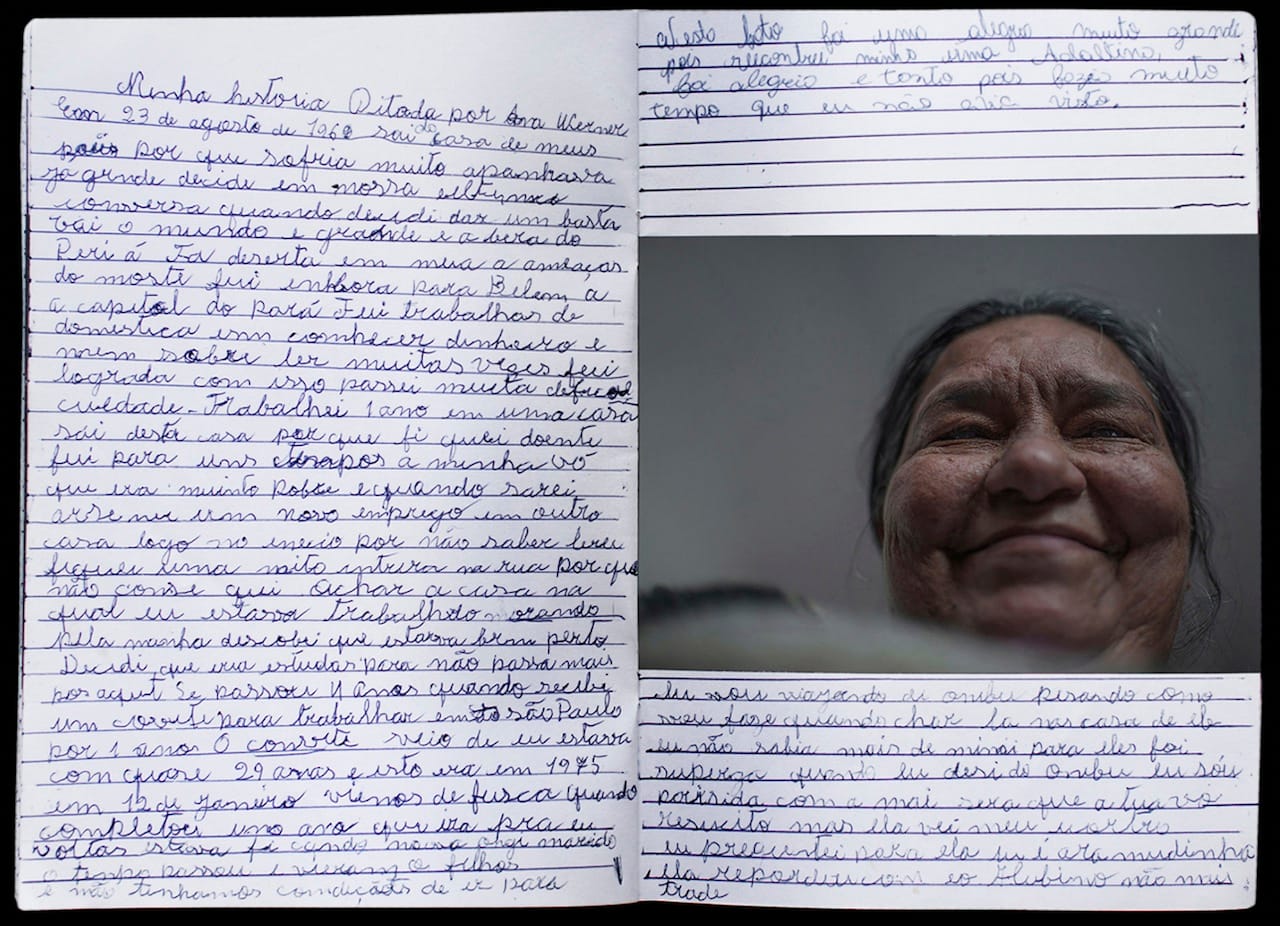 Minha historia Ditada por Ana Werner
Em 23 de agosto de 1960 sai da casa de meus
pais por que sofria muito apanhava
ja grnde decide em nossa
conversa quando decidi dar um basta
vai o mundo e grande e a bera do
Peri á Fa deserta em mua a ameaças
do moste fui embora para Belem a
a capital do Pará Fui trabalhas de
domestica em conhecer dinheiro e
nem sabre ler muitas vezes fui
lograda com isso passei muita
culdade - Trabalhei 1 ano em uma casa
sái desta casa por que fi quei doente
fui para uns tempos a minha vó
que era muinto Pobre e quando sarei
arse nei um novo emprego em outro
casa logo no inecio por não saber leru
fiquei uma noito intera na rua por que
não conse qui achar a casa na
qual eu estava trabalhdo morando
pela manha descobi que estarva bem perto
Decidi que iria estudas para não passa mais
por aquit Se passou 4 Anos quando recibi
um covite para trabalhar em São Paulo
por 1 ano O convite veio de eu estava
com quase 29 anas e isto era em 1975
em 12 de Janeiro viemos de fusca quando
completou uno ano que era pra eu
voltas estava fi cando noiva marido
o tempo passou e vieram o filhos
e não tinhamos condiçãos de ir para
N esta foto foi uma alegria muito grande
pois rencontrei minha irma Adaltina,
foi alegria e tonto pois fazia muito
tempo que eu não avia visto.
Eu vou viazando di ombu pensando como
vou faze quando char la nas casa de ele
eu não sabia mais de minoi para eles foi
superza quando eu desi do ombu eu sou
parisida com a mai sera que a tua vo
resucito mas ela vei meu
eu preguntei para ela tu é a ra mudinha
ela repondeu com eo Hubino não mais
trade